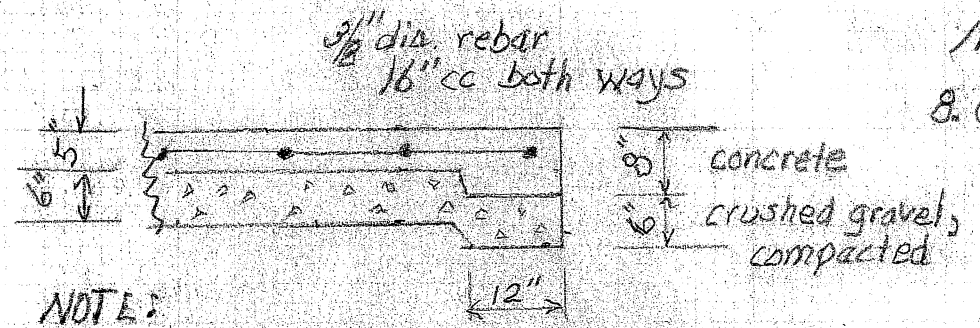 3/8" dia. rebar
16" cc both ways
8.
5"
6"
8"
concrete
6"
crushed gravel,
compacted
12"
NOTE: